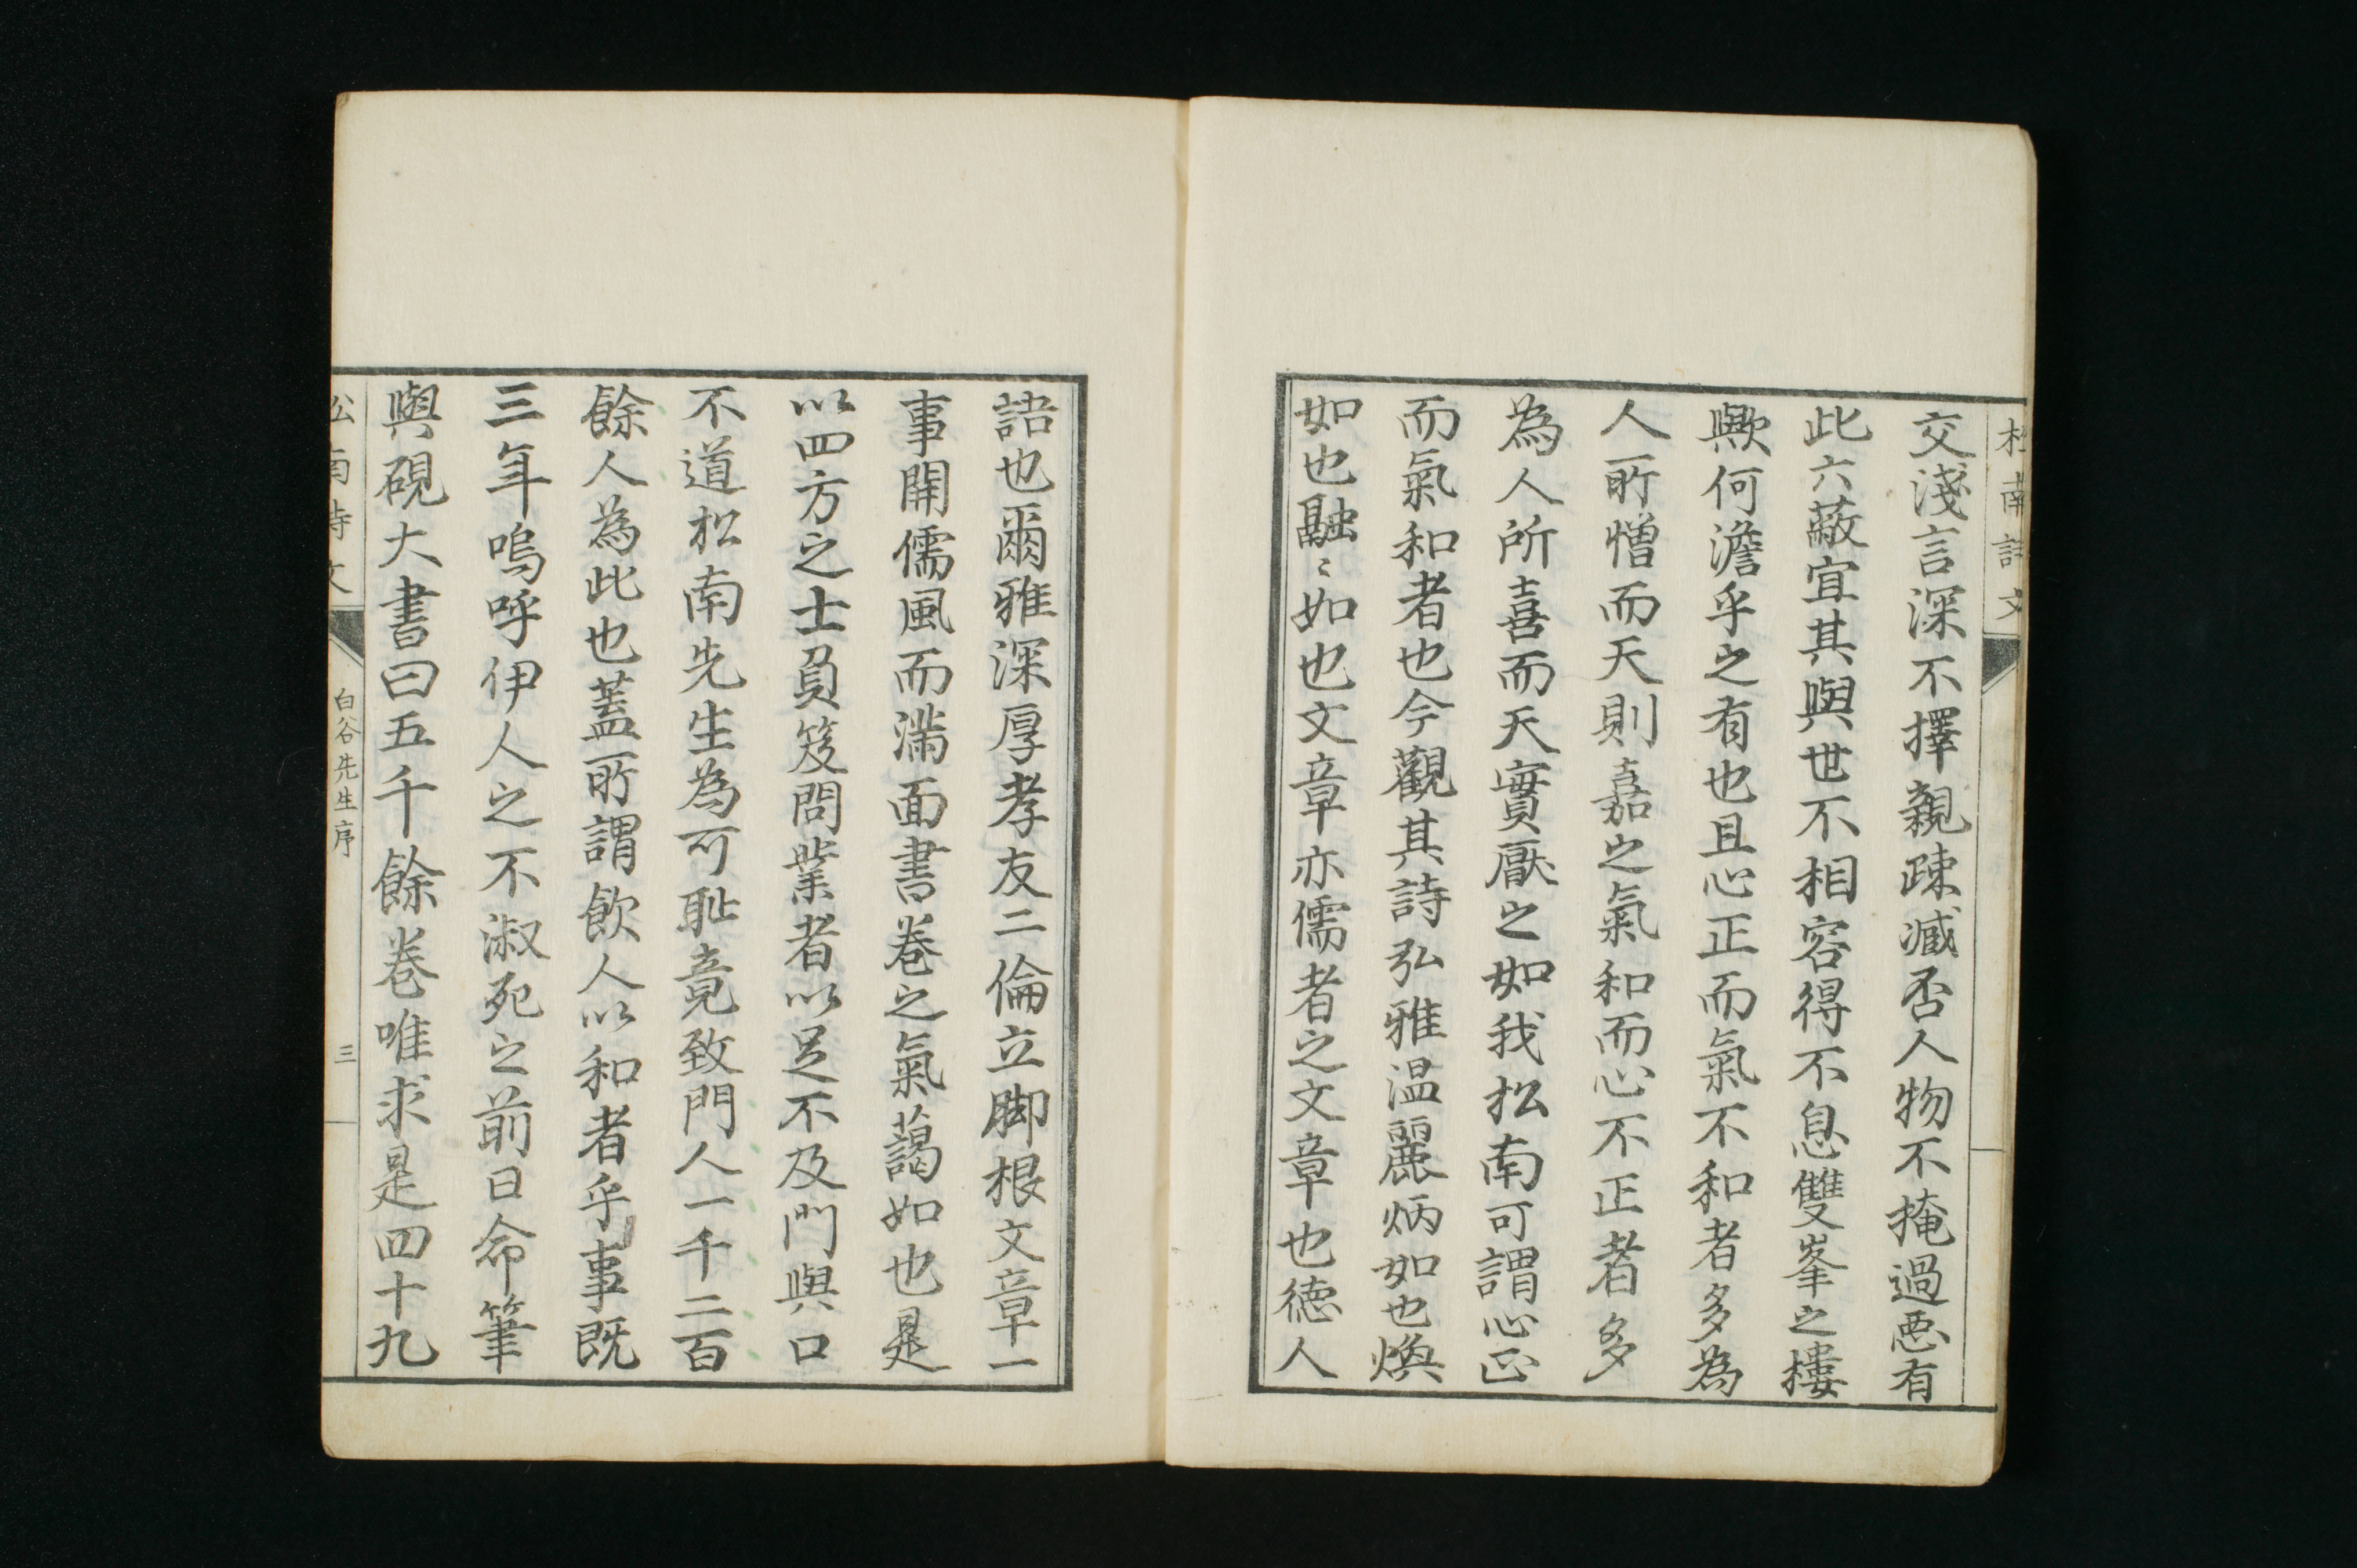 松南詩文
交淺言深不擇親疎臧否人物不掩過惡有
此六蔽宜其與世不相容得不息雙峯之樓
歟何澹乎之有也且心正而氣不和者多為
人所憎而天則嘉之氣和而心不正者多
為人所喜而天實厭之如我松南可謂心正
而氣和者也今觀其詩弘雅温麗炳如也煥
如也融〻如也文章亦儒者之文章也德人
語也爾雅深厚孝友二倫立脚根文章一
事開儒風而滿面書巻之氣藹如也是
以四方之士負笈問業者以足不及門與口
不道松南先生為可耻竟致門人一千二百
餘人為此也蓋所謂飲人以和者乎事既
三年嗚呼伊人之不淑死之前日命筆
與硯大書曰五千餘巻唯求是四十九
松南詩文
白谷先生序
三